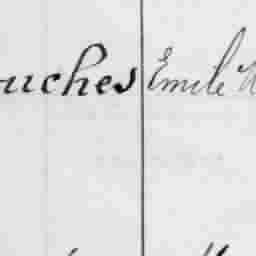 ouches Emile